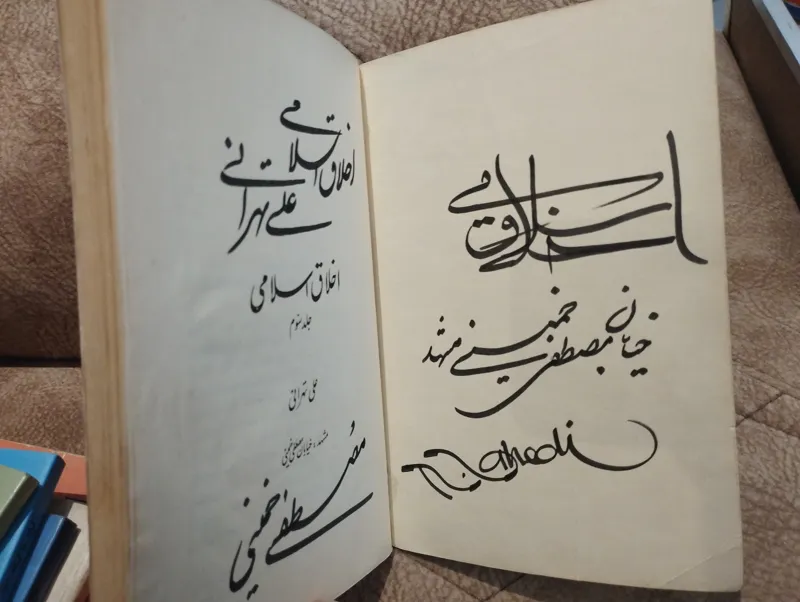 اسلامی
خیابان
مصطفی خمینی مشهد
اخلاق اسلامی
علی تهرانی
اخلاق اسلامی
جلد سوم
علی تهرانی
مشهد، خیابان مصطفی خمینی
مصطفی خمینی